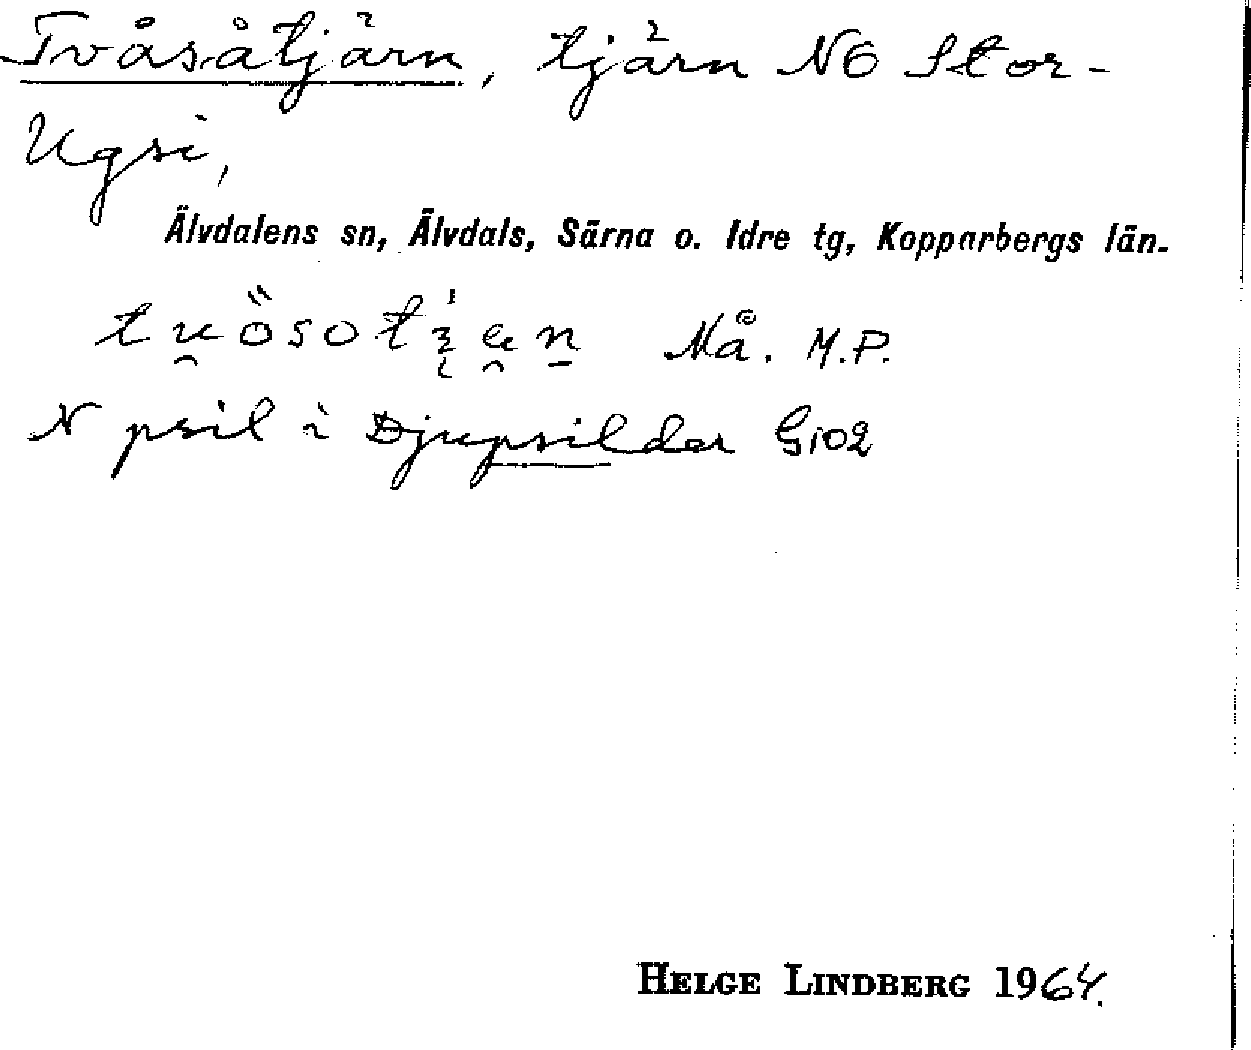 Tvåsåtjärn, tjärn NO Stor-
Ugsi,
Älvdalens sn, Älvdals, Särna o. Idre tg, Kopparbergs län.
Må. M.P.
N psil i Djupsildar Gi02
HELGE LINDBERG 1964.